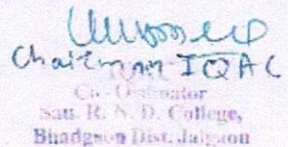 Chairman IQAC
Co-Ordinator
Sau. R. N. D. College,
Bhadgaon Dist. Jalgaon